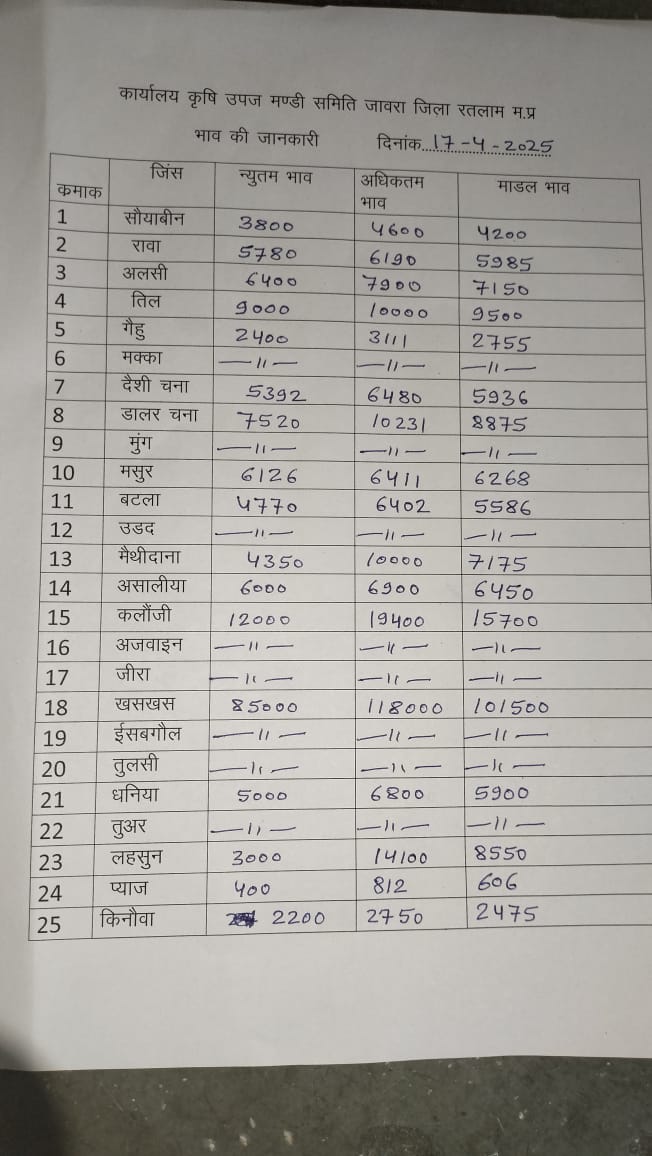 कार्यालय कृषि उपज मण्डी समिति जावरा जिला रतलाम म.प्र
भाव की जानकारी दिनांक...17-4-2025
कमाक जिंस न्युतम भाव अधिकतम भाव माडल भाव
1 सौयाबीन 3800 4600 4200
2 रावा 5780 6190 5985
3 अलसी 6400 7900 7150
4 तिल 9000 10000 9500
5 गैहु 2400 3111 2755
6 मक्का —11— —11— —11—
7 दैशी चना 5392 6480 5936
8 डालर चना 7520 10231 8875
9 मुंग —11— —11— —11—
10 मसुर 6126 6411 6268
11 बटला 4770 6402 5586
12 उडद —11— —11— —11—
13 मैथीदाना 4350 10000 7175
14 असालीया 6000 6900 6450
15 कलौंजी 12000 19400 15700
16 अजवाइन —11— —11— —11—
17 जीरा —11— —11— —11—
18 खसखस 85000 118000 101500
19 ईसबगौल —11— —11— —11—
20 तुलसी —11— —11— —11—
21 धनिया 5000 6800 5900
22 तुअर —11— —11— —11—
23 लहसुन 3000 14100 8550
24 प्याज 400 812 606
25 किनौवा 2200 2750 2475